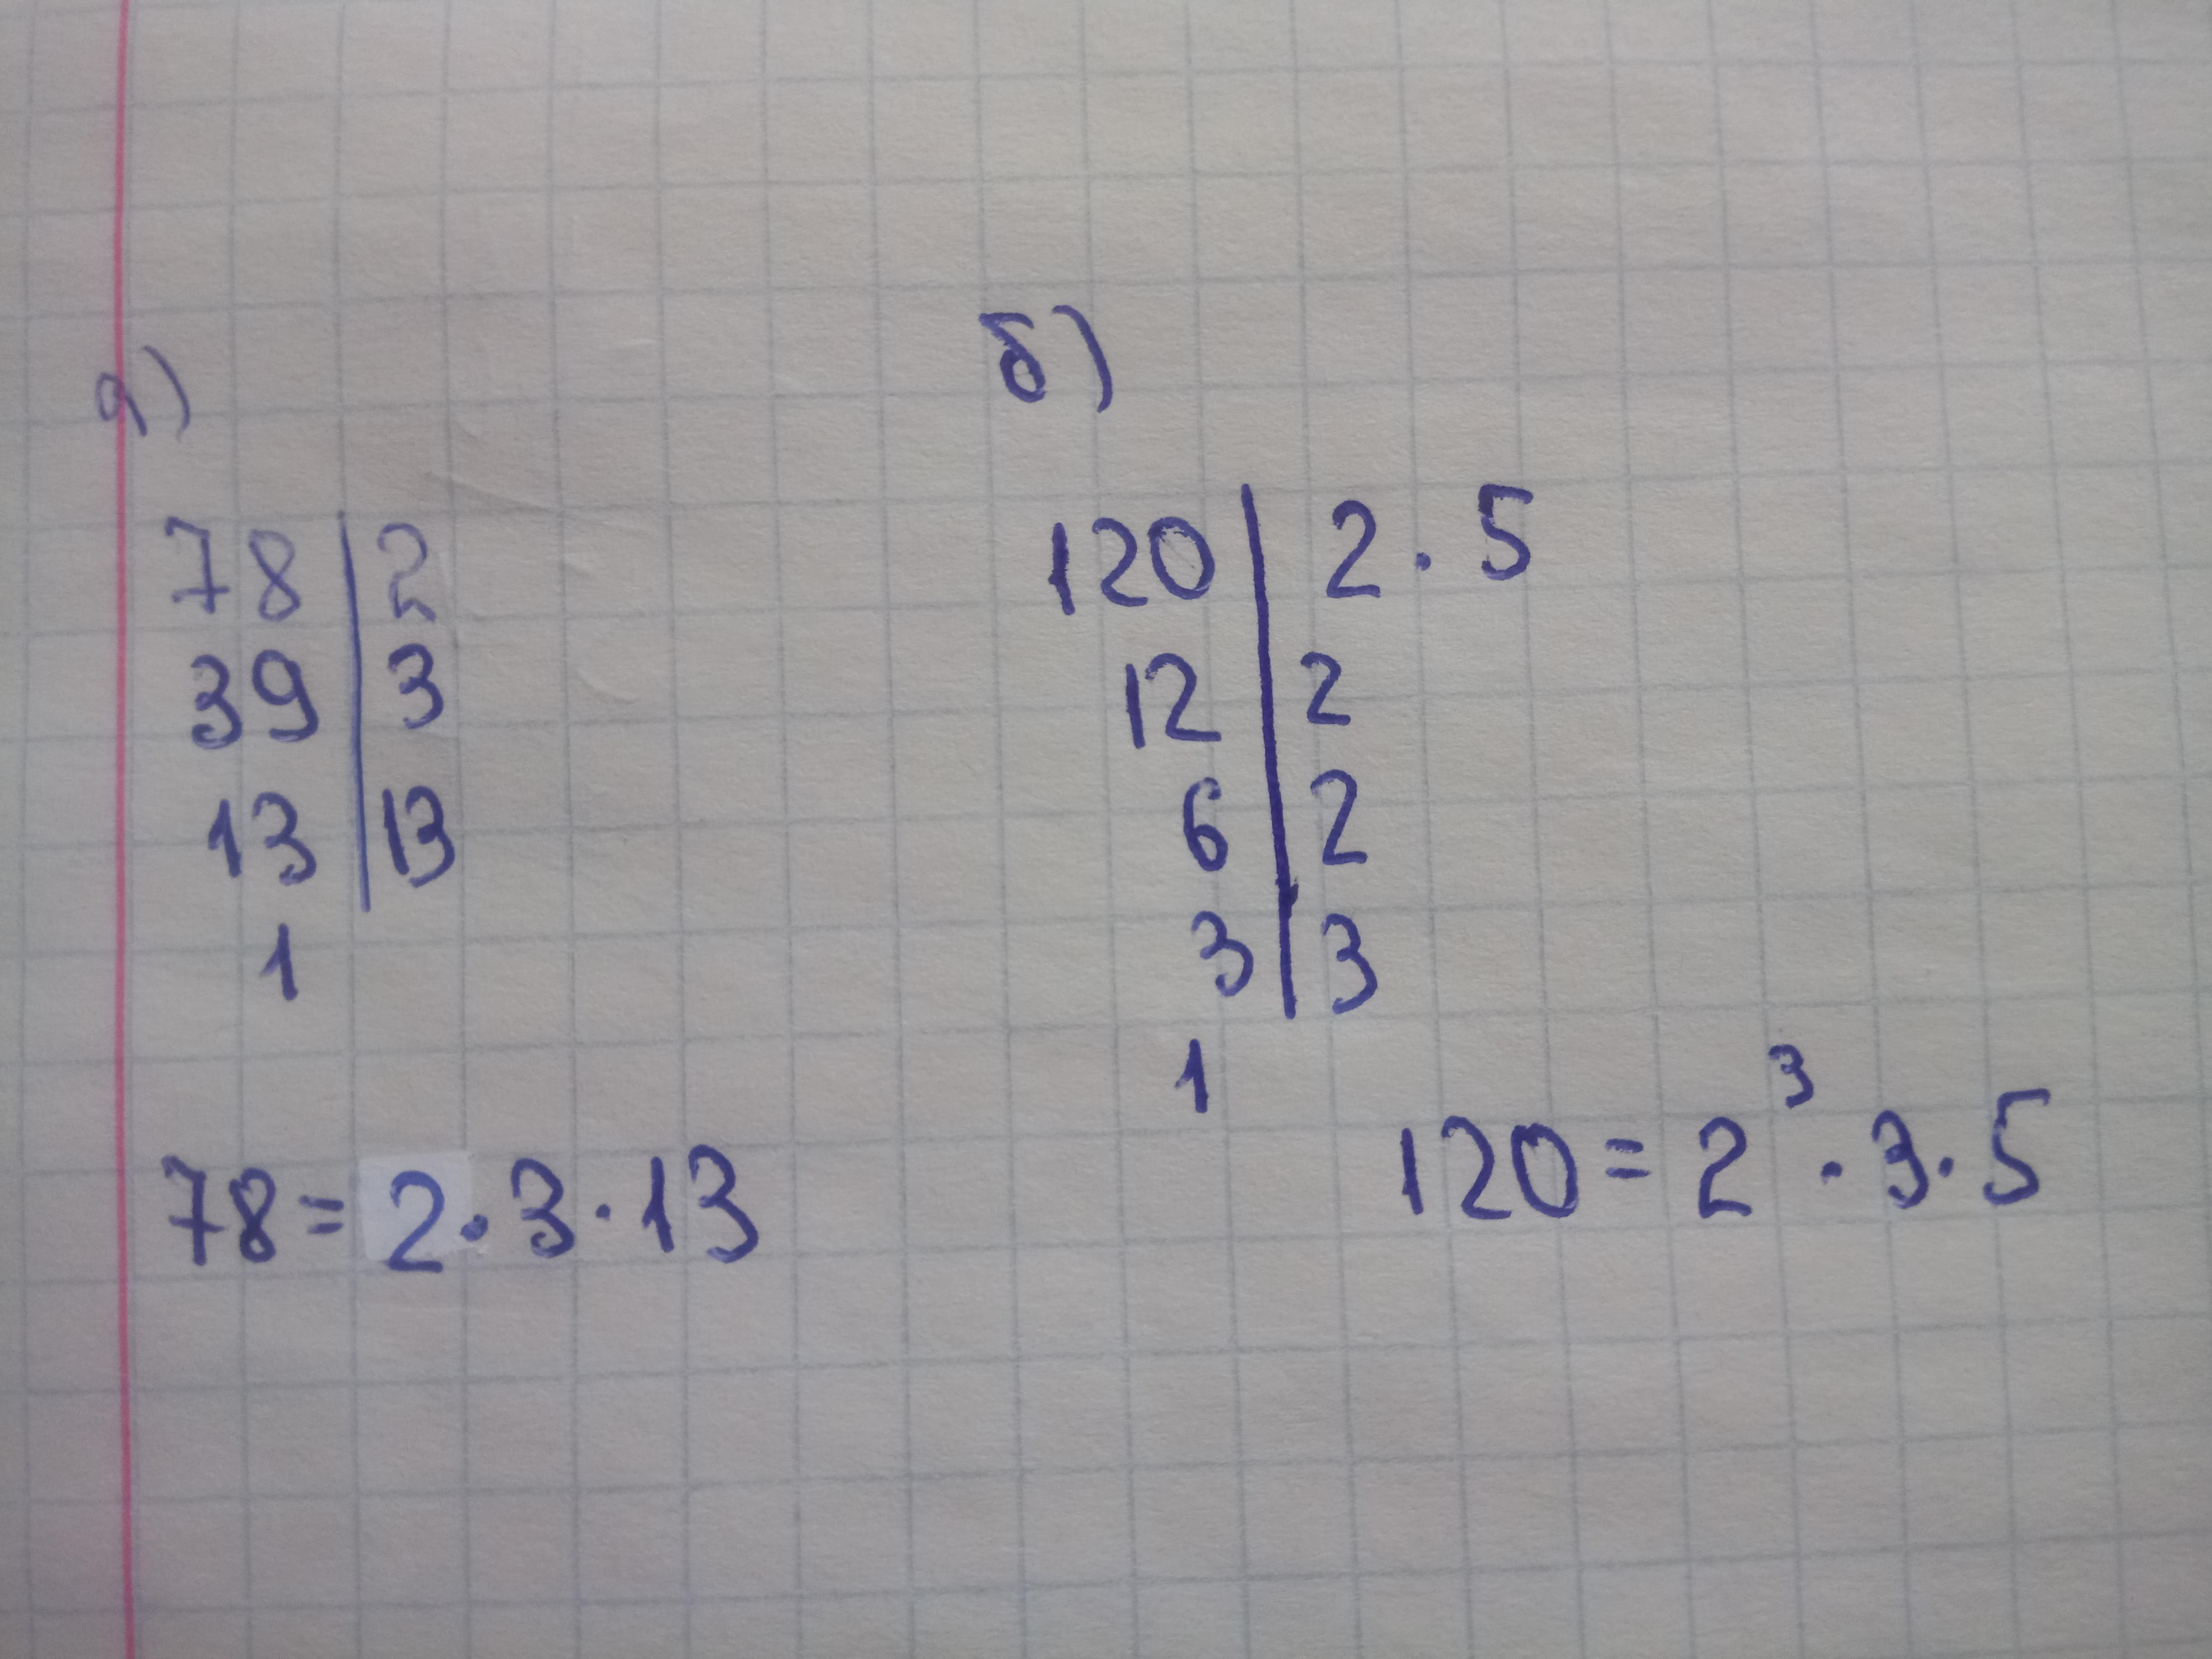 а)
78 | 2
39 | 3
13 | 13
1
78 = 2 · 3 · 13
б)
120 | 2 · 5
12 | 2
6 | 2
3 | 3
1
120 = 2³ · 3 · 5